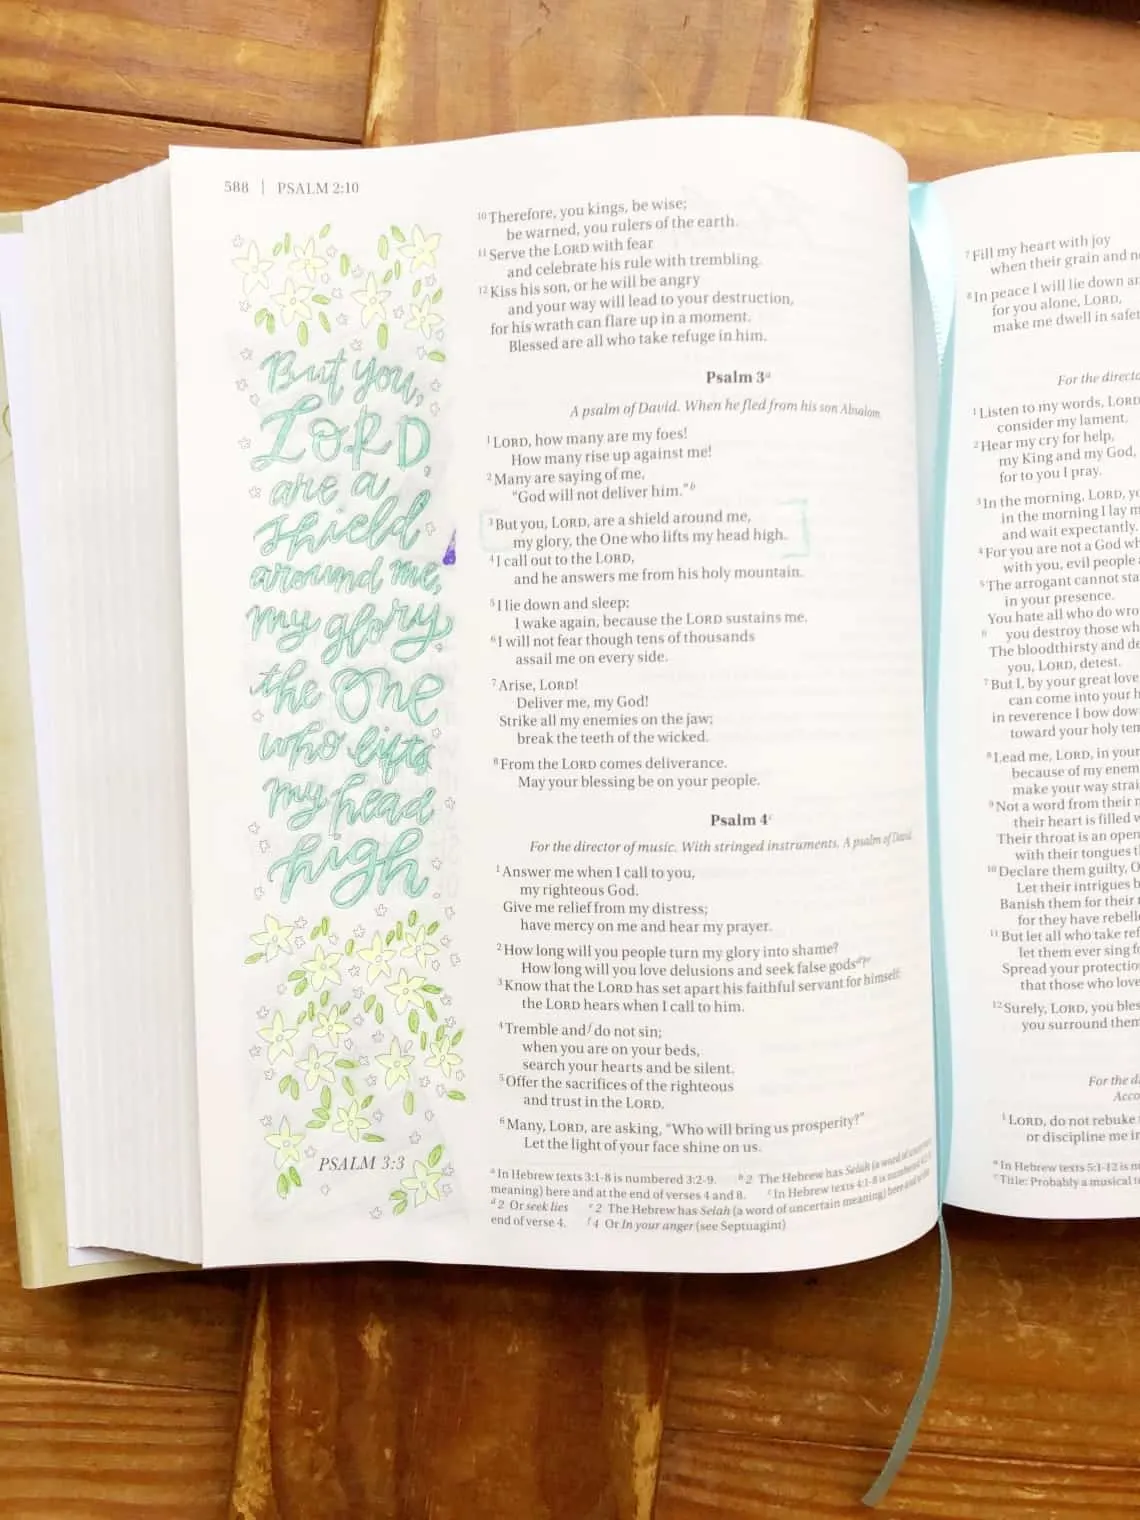 588 | PSALM 2:10
But you,
LORD,
are a
shield
around me,
my glory,
the One
who lifts
my head
high
PSALM 3:3
10 Therefore, you kings, be wise;
be warned, you rulers of the earth.
11 Serve the LORD with fear
and celebrate his rule with trembling.
12 Kiss his son, or he will be angry
and your way will lead to your destruction,
for his wrath can flare up in a moment.
Blessed are all who take refuge in him.
Psalm 3a
A psalm of David. When he fled from his son Absalom.
1 LORD, how many are my foes!
How many rise up against me!
2 Many are saying of me,
“God will not deliver him.”b
3 But you, LORD, are a shield around me,
my glory, the One who lifts my head high.
4 I call out to the LORD,
and he answers me from his holy mountain.
5 I lie down and sleep;
I wake again, because the LORD sustains me.
6 I will not fear though tens of thousands
assail me on every side.
7 Arise, LORD!
Deliver me, my God!
Strike all my enemies on the jaw;
break the teeth of the wicked.
8 From the LORD comes deliverance.
May your blessing be on your people.
Psalm 4c
For the director of music. With stringed instruments. A psalm of David.
1 Answer me when I call to you,
my righteous God.
Give me relief from my distress;
have mercy on me and hear my prayer.
2 How long will you people turn my glory into shame?
How long will you love delusions and seek false godsd?e
3 Know that the LORD has set apart his faithful servant for himself;
the LORD hears when I call to him.
4 Tremble andf do not sin;
when you are on your beds,
search your hearts and be silent.
5 Offer the sacrifices of the righteous
and trust in the LORD.
6 Many, LORD, are asking, “Who will bring us prosperity?”
Let the light of your face shine on us.
a In Hebrew texts 3:1-8 is numbered 3:2-9. b 2 The Hebrew has Selah (a word of uncertain
meaning) here and at the end of verses 4 and 8. c In Hebrew texts 4:1-8 is numbered 4:2-9.
d 2 Or seek lies e 2 The Hebrew has Selah (a word of uncertain meaning) here and at the
end of verse 4. f 4 Or In your anger (see Septuagint)
7 Fill my heart with joy
when their grain and
8 In peace I will lie down
for you alone, LORD,
make me dwell in
For the
1 Listen to my words, LORD
consider my lament.
2 Hear my cry for help,
my King and my God,
for to you I pray.
3 In the morning, LORD,
in the morning I lay
and wait expectantly.
4 For you are not a God
with you, evil people
5 The arrogant cannot
in your presence.
You hate all who do
6 you destroy those
The bloodthirsty and
you, LORD, detest.
7 But I, by your great love
can come into your
in reverence I bow
toward your holy
8 Lead me, LORD, in your
because of my
make your way
9 Not a word from their
their heart is filled
Their throat is an open
with their tongues
10 Declare them guilty, O
Let their intrigues
Banish them for their
for they have
11 But let all who take
let them ever sing
Spread your
that those who love
12 Surely, LORD, you
you surround them
For the
1 LORD, do not rebuke
or discipline me
a In Hebrew texts 5:1-12 is
c Title: Probably a musical